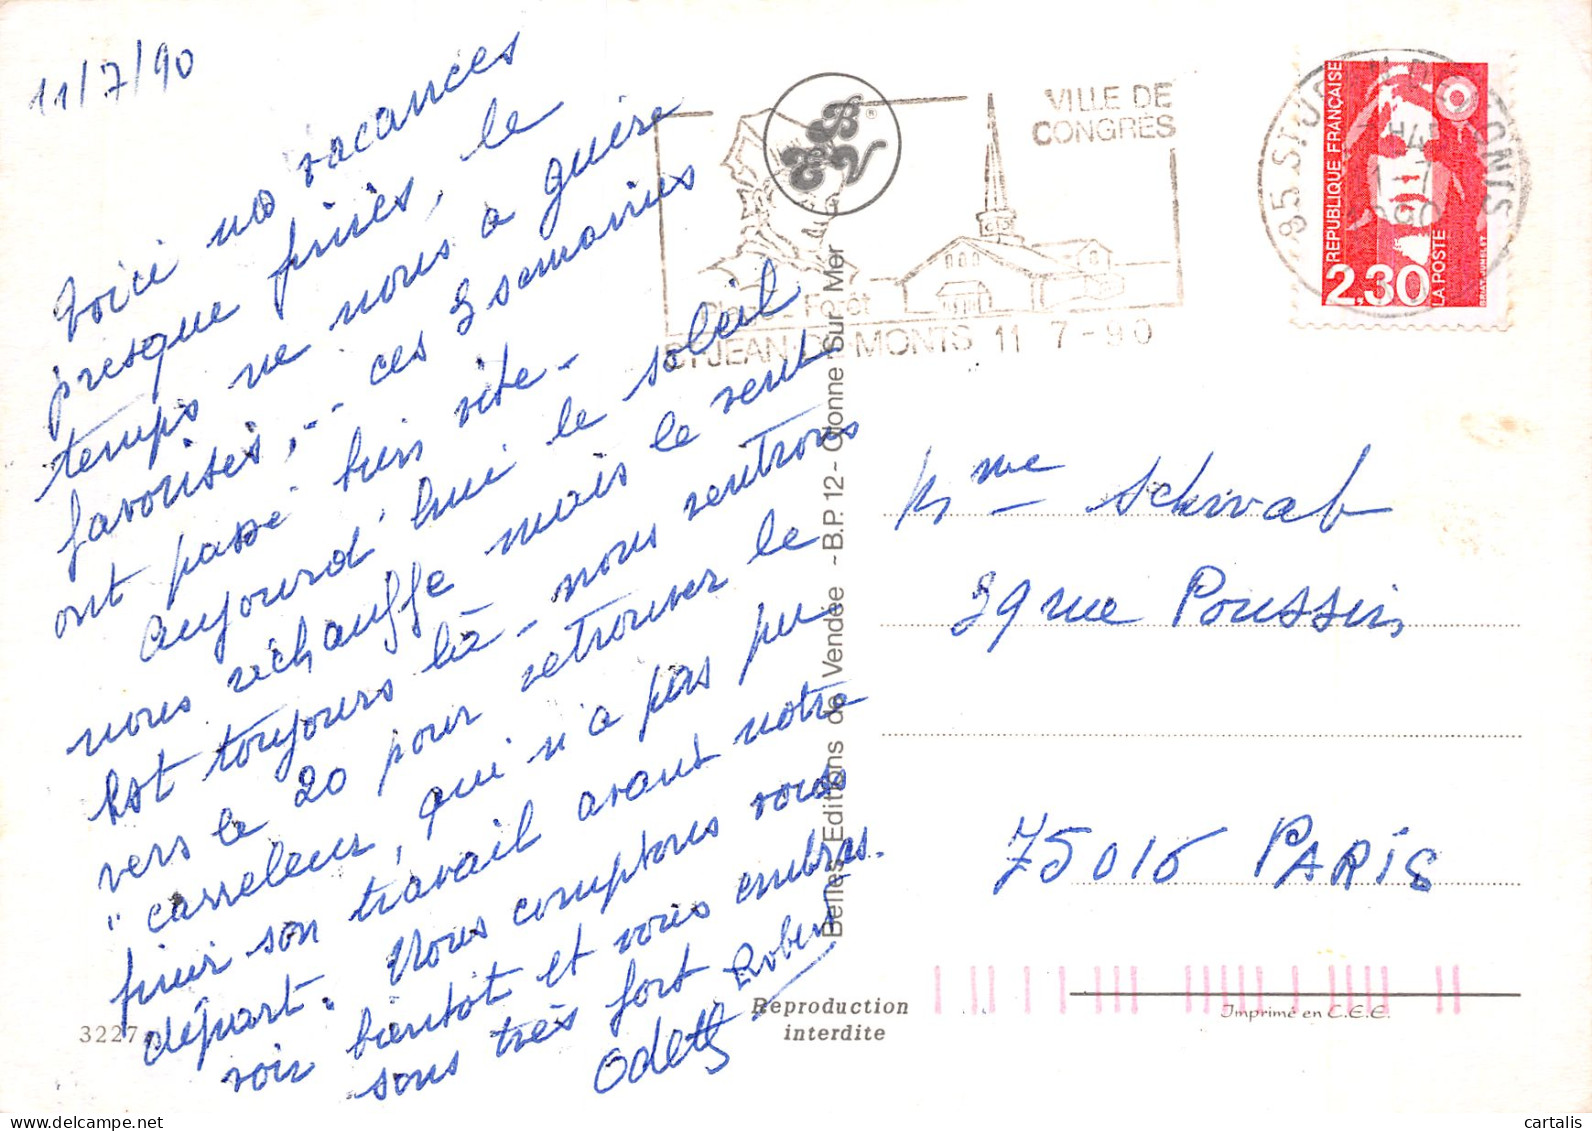 11/7/90
Voici nos vacances
presque finies, le
temps ne nous a guère
favorisés, -- ces 3 semaines
ont passé bien vite -
Aujourd'hui le soleil
nous réchauffe mais le vent
est toujours là - nous rentrons
vers le 20 pour retrouver le
"carreleur, qui n'a pas pu
finir son travail avant notre
départ. Nous comptons vous
voir bientôt et vous embras.
sons très fort
Odette Robert
3227
Belles Editions de Vendée - B.P. 12 - Olonne Sur Mer
ABV
®
VILLE DE
CONGRÈS
Forêt
ST JEAN DE MONTS 11 7-90
85 ST JEAN DE MONTS
REPUBLIQUE FRANÇAISE
2,30
LA POSTE
BRIAT JUMELET
Mme Schwab
39 rue Poussin
75016 PARIS
Reproduction
interdite
Imprimé en C.E.E.
www.delcampe.net
cartalis